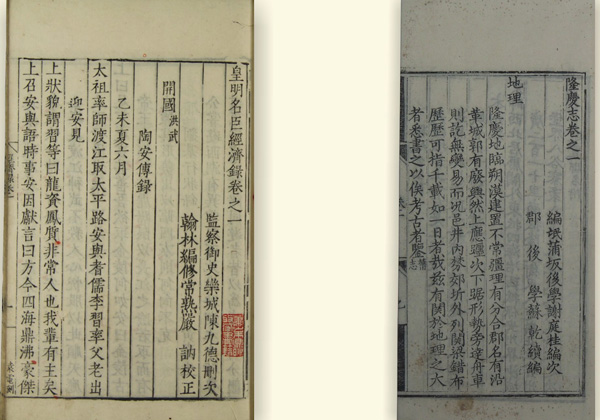 皇明名臣經濟錄卷之一
監察御史欒城陳九德刪次
翰林編修常熟嚴 訥校正
開國 洪武
陶安傳錄
乙未夏六月
太祖率師渡江取太平路安與耆儒李習率父老出
迎安見
上狀貌謂習等曰龍資鳳質非常人也我輩有主矣
上召安與語時事安因獻言曰方今四海鼎沸豪傑
隆慶志卷之一
編氓蒲坂後學謝庭桂編次
郡 後 學蘇乾續編
地理
隆慶地臨朔漠建置不常疆理有分合郡名有沿
革城郭有廢興然上應躔次下踞形勢旁達舟車
則訖無變易而况邑井内禁郊圻外列関梁錯布
歷歷可指千載如一日者哉茲有関於地理之大
者悉書之以俟考古者鑒 舊志